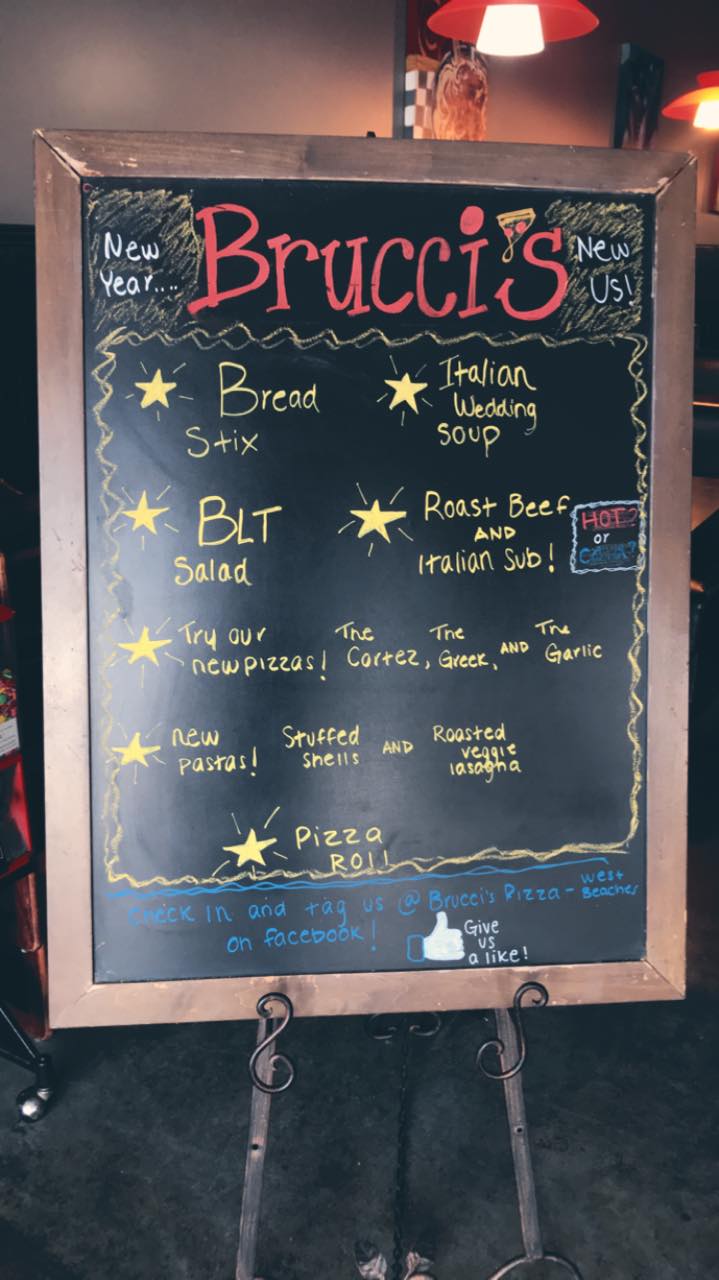 New
Year....
Brucci's
New
Us!
Bread
Stix
Italian
Wedding
Soup
BLT
Salad
Roast Beef
AND
Italian Sub!
HOT?
or
COLD?
Try our
new pizzas!
The
Cortez,
The
Greek,
AND
The
Garlic
new
pastas!
Stuffed
shells
AND
Roasted
veggie
lasagna
Pizza
Roll
Check in and tag us @ Brucci's Pizza - west
Beaches
on facebook!
Give
us
a like!